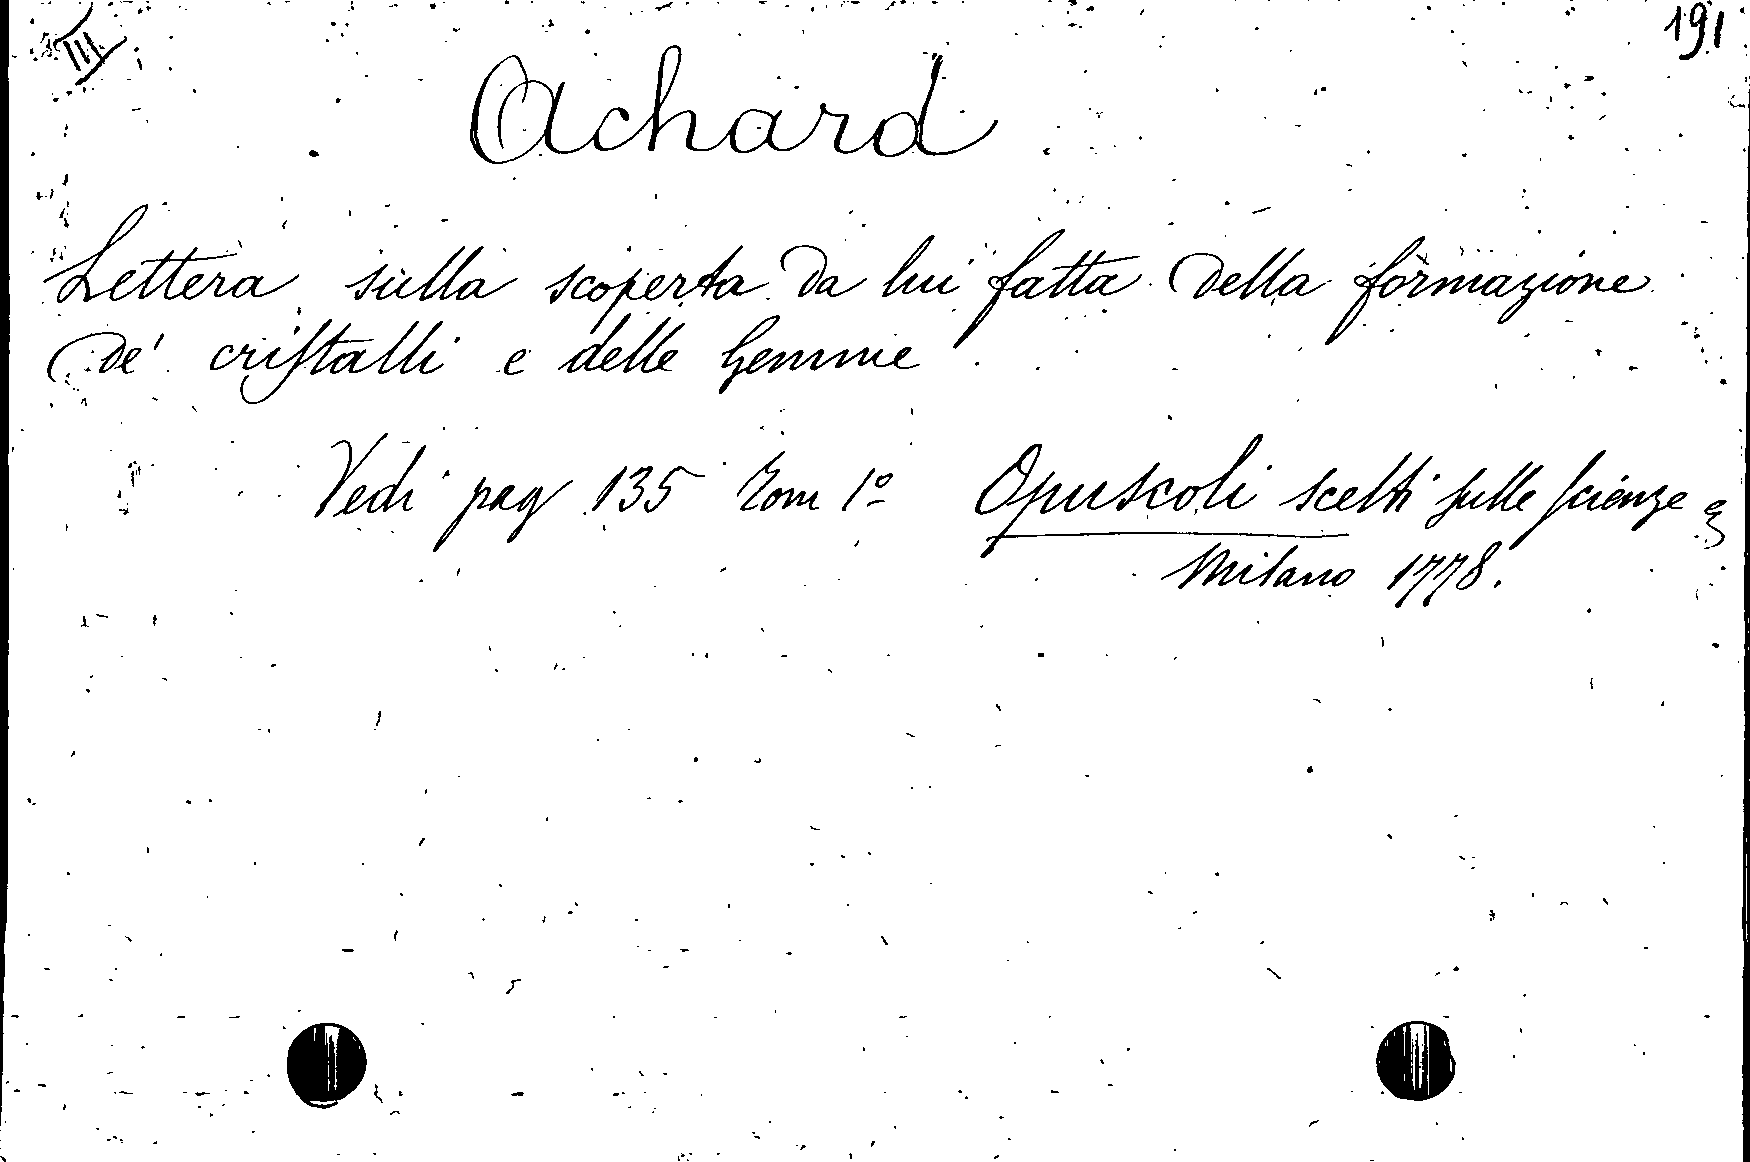 III
191
Achard
Lettera sulla scoperta da lui fatta della formazione
de' cristalli e delle Gemme
Vedi pag 135 Tom 1º Opuscoli scelti sulle scienze e
Milano 1778.